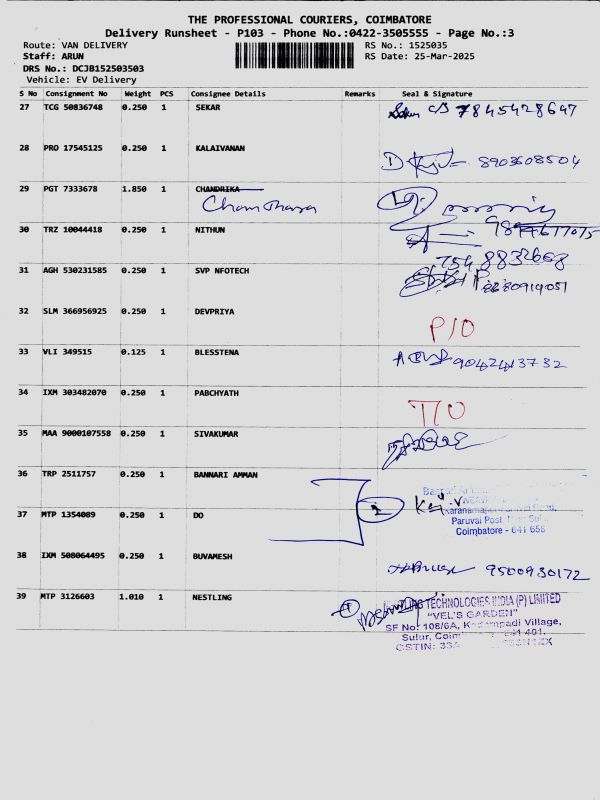 THE PROFESSIONAL COURIERS, COIMBATORE
Delivery Runsheet - P103 - Phone No.:0422-3505555 - Page No.:3
Route: VAN DELIVERY RS No.: 1525035
Staff: ARUN RS Date: 25-Mar-2025
DRS No.: DCJB152503503
Vehicle: EV Delivery
S No Consignment No Weight PCS Consignee Details Remarks Seal & Signature
27 TCG 50836748 0.250 1 SEKAR C/S 7845428647
28 PRO 17545125 0.250 1 KALAIVANAN 8903608504
29 PGT 7333678 1.850 1 CHANDRIKA
30 TRZ 10044418 0.250 1 NITHUN
7548832668
31 AGH 530231585 0.250 1 SVP NFOTECH
32 SLM 366956925 0.250 1 DEVPRIYA P/O
33 VLI 349515 0.125 1 BLESSTENA 9042413732
34 IXM 303482070 0.250 1 PABCHYATH T/O
35 MAA 9000107558 0.250 1 SIVAKUMAR
36 TRP 2511757 0.250 1 BANNARI AMMAN
37 MTP 1354089 0.250 1 DO 2
Paruvai Post,
Coimbatore - 641 658
38 IXM 508064495 0.250 1 BUVAMESH 9500930172
39 MTP 3126603 1.010 1 NESTLING TECHNOLOGIES INDIA (P) LIMITED
"VEL'S GARDEN"
SF No: 108/6A, Village,
Sulur, 641 401.
GSTIN: 33A